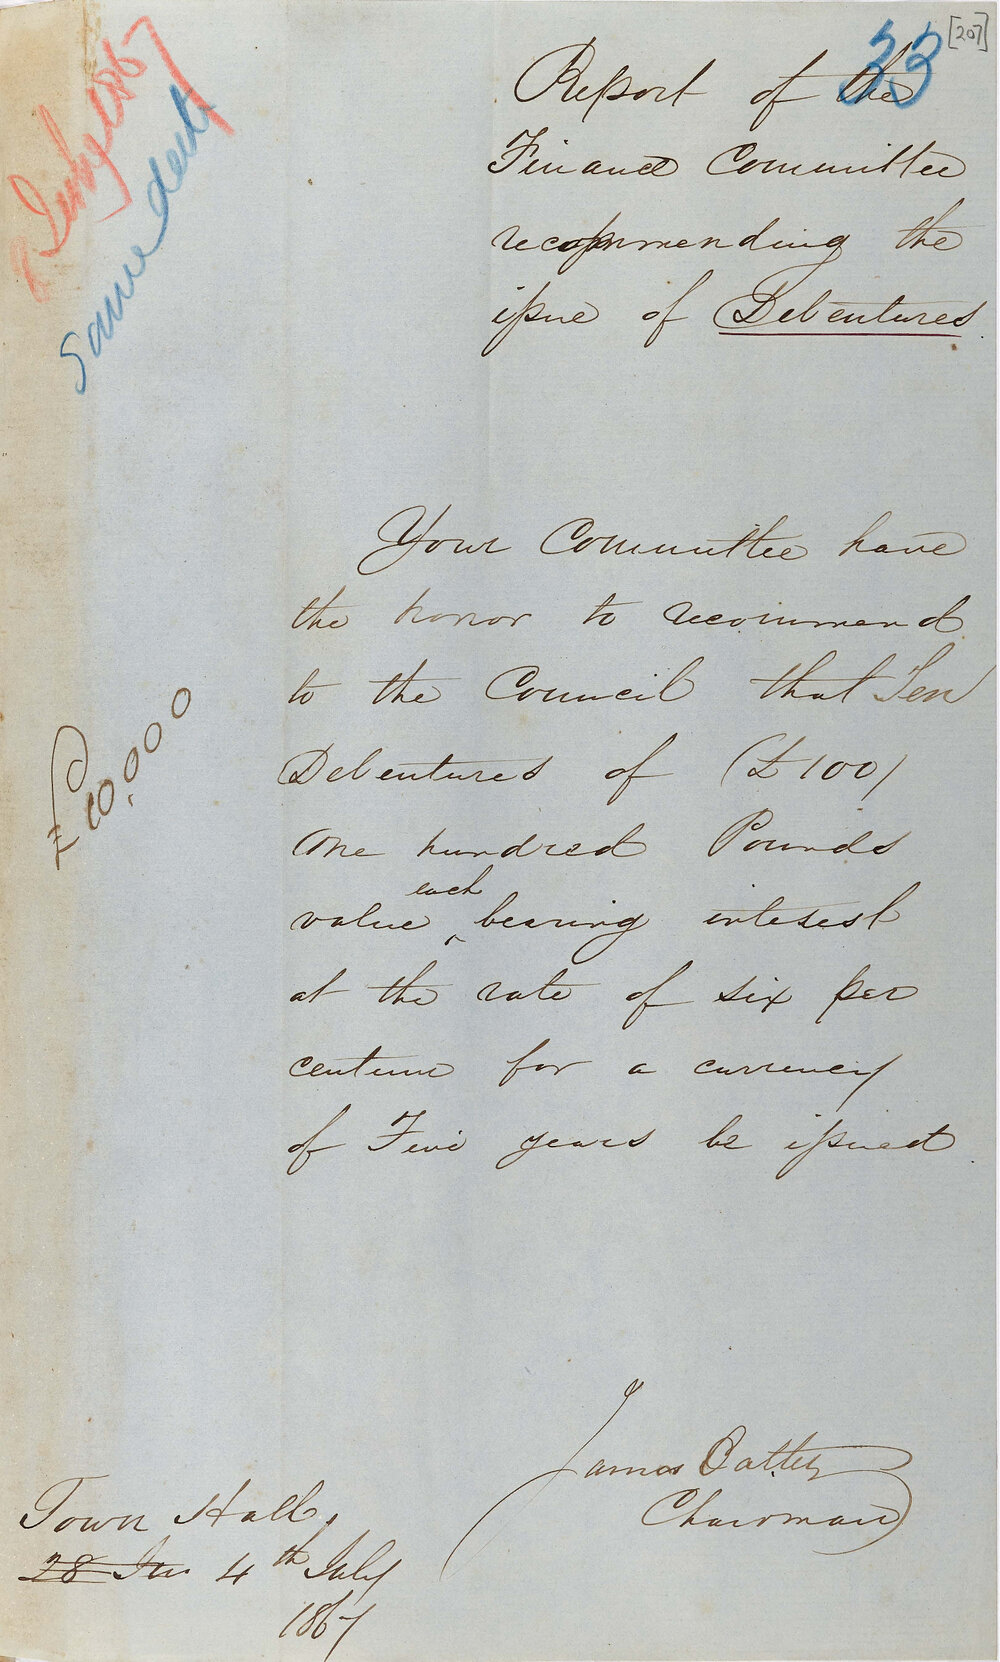 [207]
33
8 July 1867
Same date
Report of the
Finance Committee
recommending the
issue of Debentures.
Your Committee have
the honor to recommend
to the Council that Ten
Debentures of (£100/
One hundred Pounds
each
value ‸ bearing interest
at the rate of six per
centum for a currency
of Five years be issued
£10,000
James Battley
Chairman
Town Hall,
28 Jun 4th July
1867